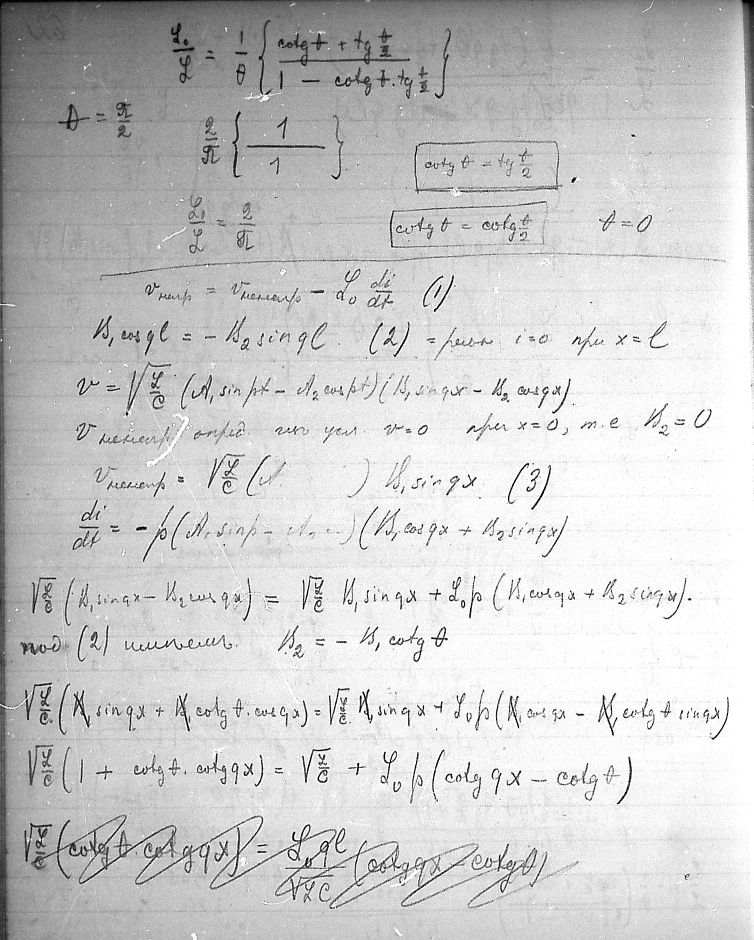 L₀/L = 1/θ { (cotg θ + tg θ/2) / (1 − cotg θ · tg θ/2) }
θ = π/2   2/π { 1/1 }   cotg θ = tg θ/2
L₀/L = 2/π   cotg θ = cotg θ/2   θ = 0
v = v − L₀ di/dt (1)
B₁ cos ql = − B₂ sin ql. (2) i=0 при x=l
v = √(L/C) (A₁ sin pt − A₂ cos pt)(B₁ sin qx − B₂ cos qx)
v опред. изъ усл. v=0 при x=0, т.е. B₂ = 0
v = √(L/C) (A ) B₁ sin qx. (3)
di/dt = − p (A₁ sin p − A₂ …)(B₁ cos qx + B₂ sin qx)
√(L/C) (B₁ sin qx − B₂ cos qx) = √(L/C) B₁ sin qx + L₀p (B₁ cos qx + B₂ sin qx).
(2) имѣемъ. B₂ = − B₁ cotg θ
√(L/C) (B₁ sin qx + B₁ cotg θ · cos qx) = √(L/C) B₁ sin qx + L₀p (B₁ cos qx − B₁ cotg θ sin qx)
√(L/C) (1 + cotg θ · cotg qx) = √(L/C) + L₀p (cotg qx − cotg θ)
√(L/C) (cotg θ · cotg qx) = L₀ql/√(LC) (cotg qx − cotg θ)